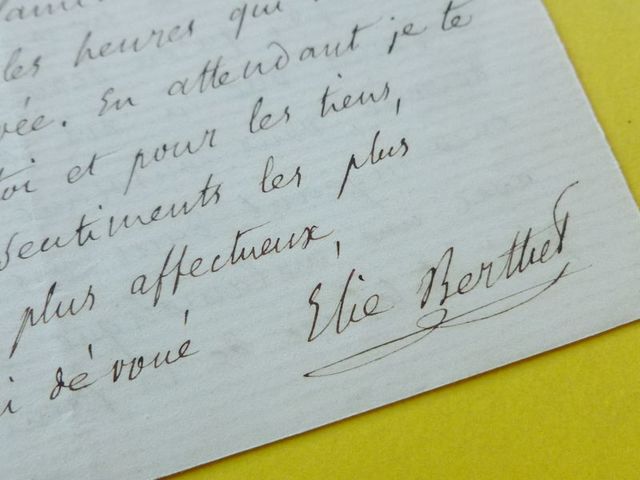 les heures qui
En attendant je te
toi et pour les tiens,
sentiments les plus
plus affectueux,
dévoué
Elie Berthet